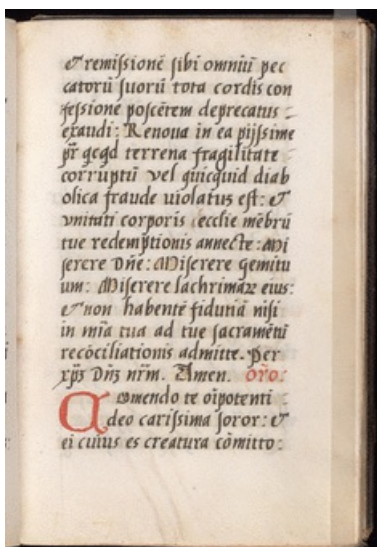 & remissionē sibi omniū pec
catorū suorū tota cordis con
fessione poscētem deprecatus
exaudi: Renoua in ea pijssime
pr̄ qcqd terrena fragilitate
corruptū vel quicquid diab
olica fraude uiolatus est: &
vnitati corporis ecclie mēbrū
tue redemptionis annecte: Mi
serere Dn̄e: Miserere gemitu
um: Miserere lachrimaꝝ eius:
& non habentē fidutiā nisi
in mīa tua ad tue sacramētū
recōciliationis admitte. Per
xp̄z Dn̄z nr̄m. Amen. or̄o:
Comendo te oīpotenti
deo carissima soror: &
ei cuius es creatura cōmitto: